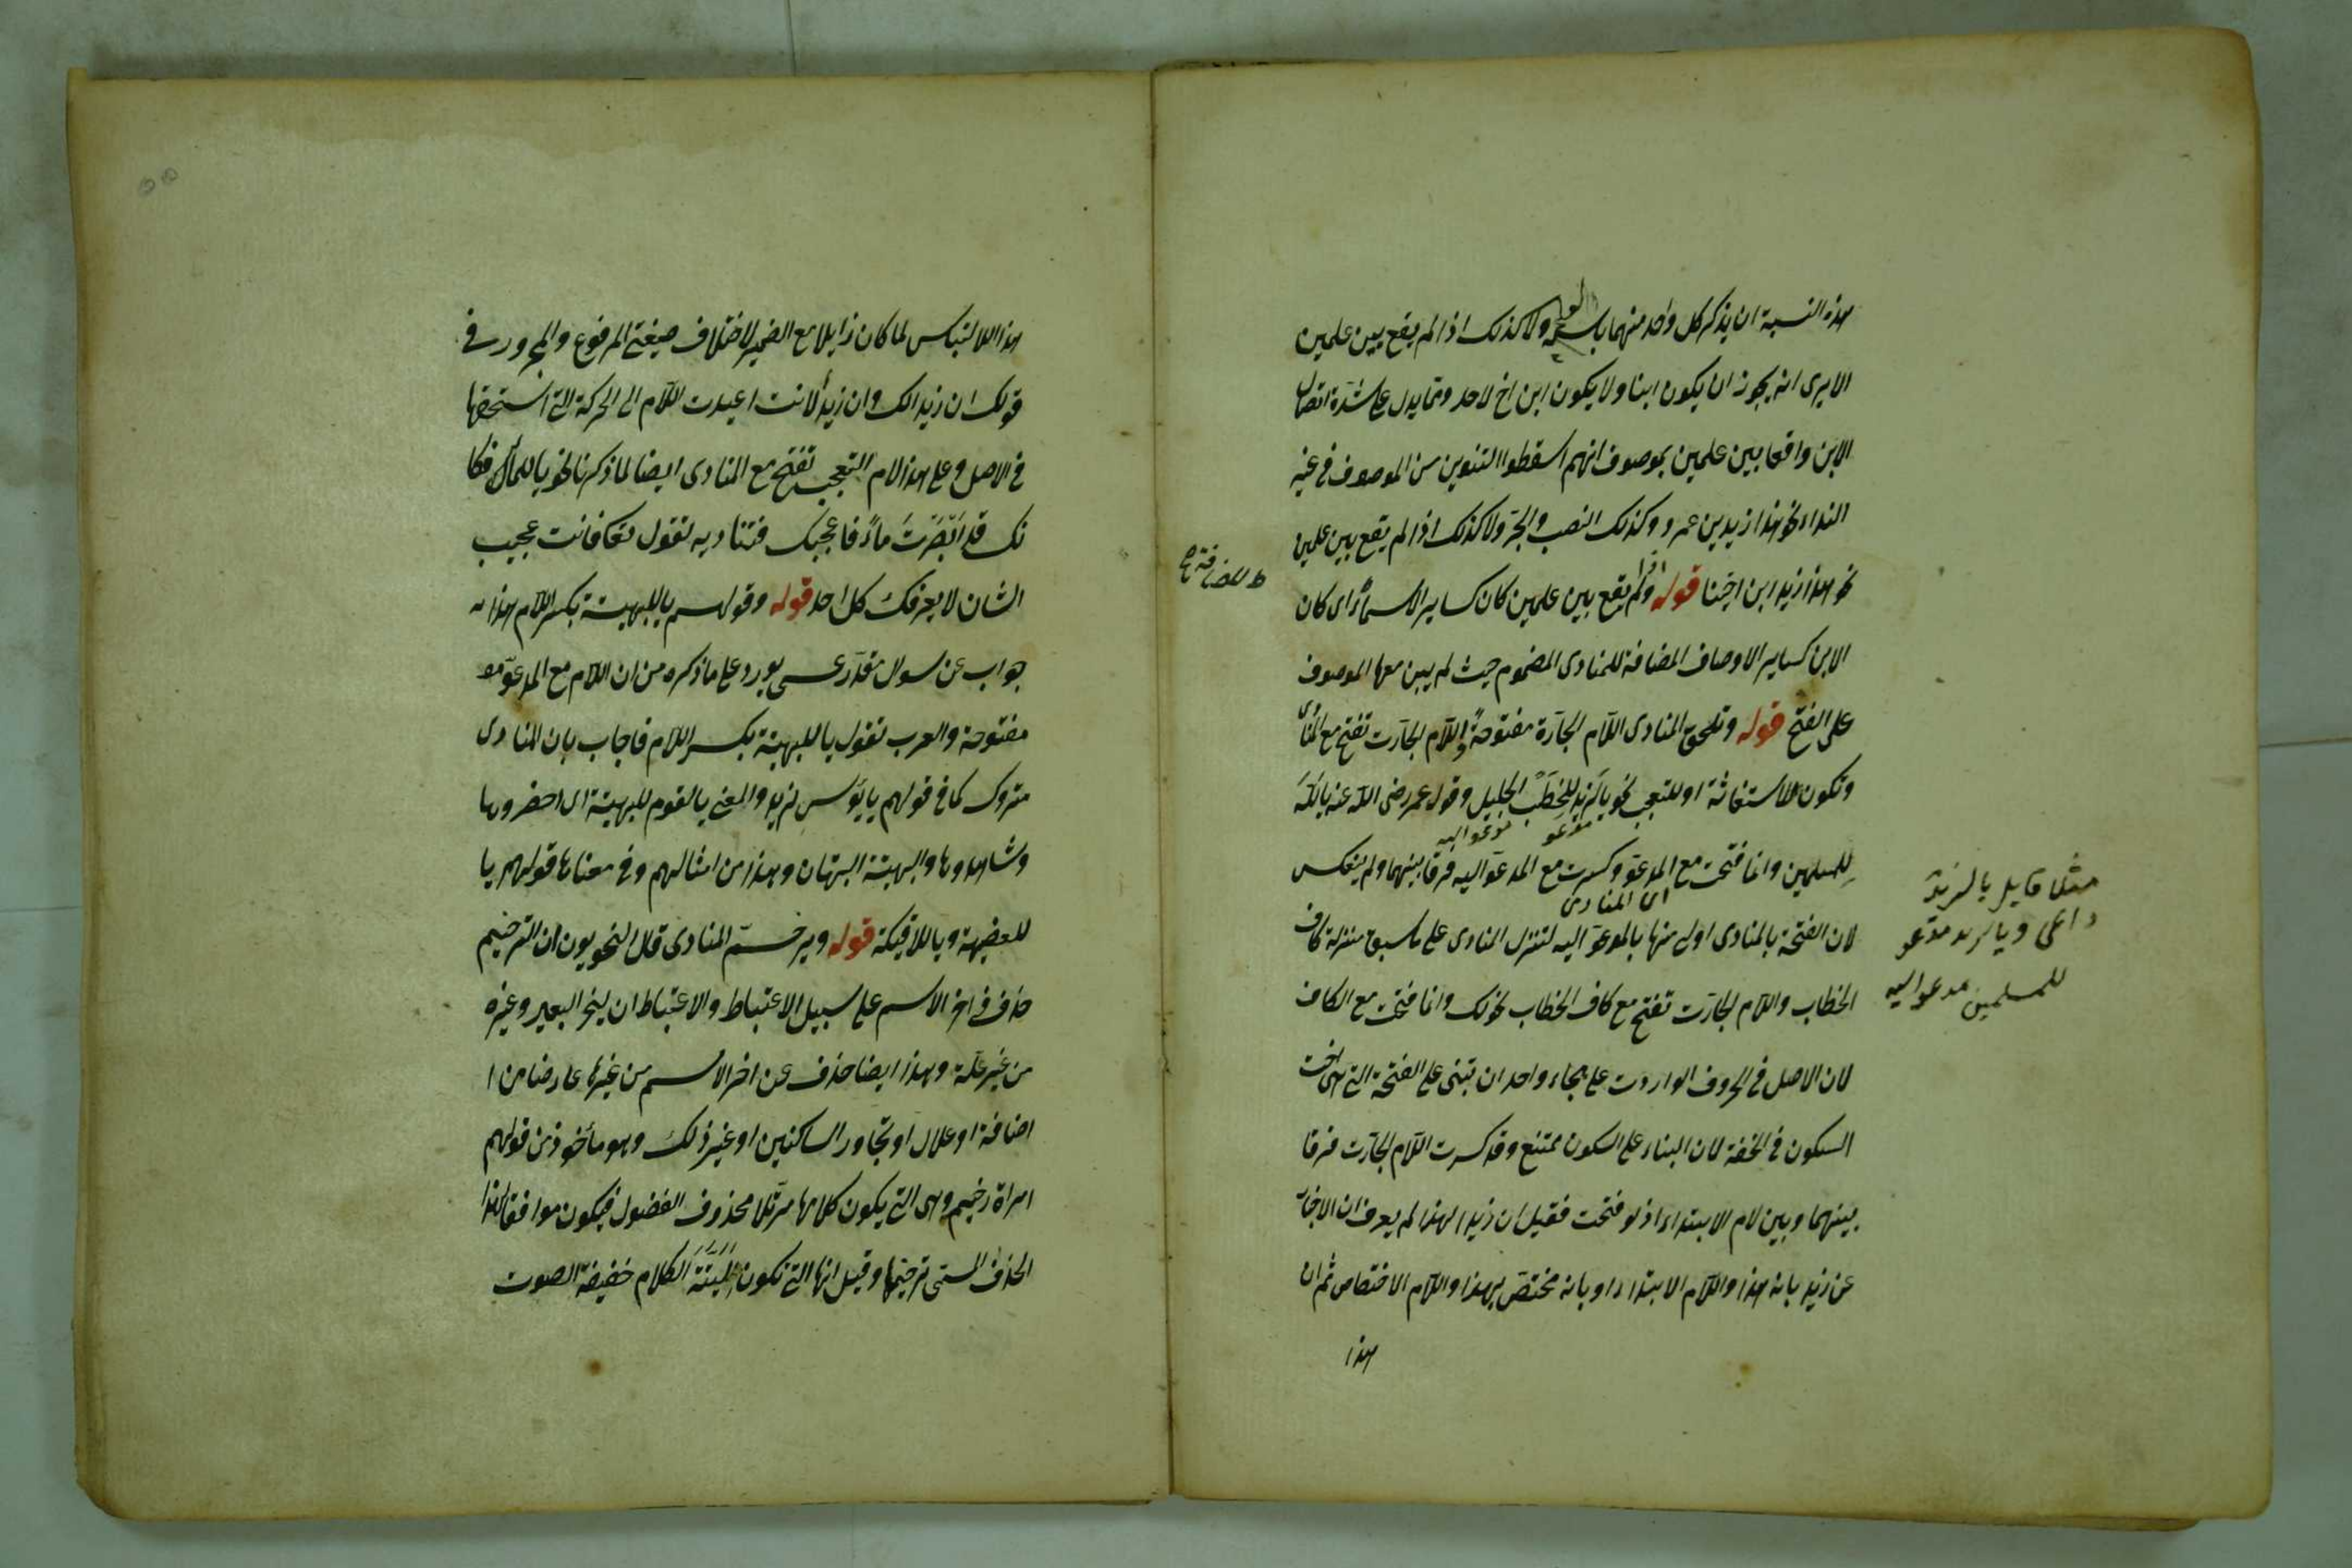 هذه النسبة ان يذكر كل واحد منهما باسمه ولا كذلك اذا لم يقع بين علمين
الا يرى انه يجوز ان يكون ابنا ولا يكون ابن اخ لاحد ومما يدل على شدة اتصال
الابن واقعا بين علمين بموصوف انهم اسقطوا التنوين من الموصوف في غير
النداء نحو هذا زيد بن عمرو وكذلك النصب والجر ولا كذلك اذا لم يقع بين علمين
نحو هذا زيد ابن اخينا قوله واذا لم يقع بين علمين كان كساير الاسماء اى كان
الابن كساير الاوصاف المضافة للمنادى المضموم حيث لم يبن معها الموصوف
على الفتح قوله وتلحق المنادى اللام الجارة مفتوحة واللام الجارت تفتح مع المنادى
وتكون للاستغاثة او للتعجب نحو يا لزيد للخطب الجليل وقول عمر رضى الله عنه يا لله
مدعو مدعو اليه
للمسلمين وانما فتحت مع المدعو وكسرت مع المدعو اليه فرقا بينهما ولم ينعكس
اى المنادى
لان الفتحة بالمنادى اولى منها بالمدعو اليه لتنزل المنادى على ما سبق منزلة كاف
الخطاب واللام الجارت تفتح مع كاف الخطاب نحو لك وانما فتحت مع الكاف
لان الاصل في الحروف الواردت على هجاء واحد ان تبنى على الفتحة التى هى اخت
السكون في الخفة لان البناء على السكون ممتنع وقد كسرت اللام الجارت فرقا
بينهما وبين لام الابتداء اذ لو فتحت فقيل ان زيدا لهذا لم يعرف ان الاخبار
عن زيد بانه هذا واللام الابتداء او بانه مختص بهذا واللام الاختصاص ثم ان
هذا
مثلا قايل يا لزيد
داعى ويا لزيد مدعو
للمسلمين مدعو اليه
هذا الالتباس لما كان زايلا مع الضمير لاختلاف صيغتى المرفوع والمجرور في
قولك ان زيدا لك وان زيدا لانت اعيدت اللام الى الحركة التى استحقها
في الاصل وعلى هذا لام التعجب تفتح مع المنادى ايضا لما ذكرنا نحو يا للماء فكا
نك قد ابصرت ماءً فاعجبك فتناديه لتقول تعال فانت عجيب
الشان لا يعرفك كل احد قوله وقولهم يا للبهيتة بكسر اللام هذا
جواب عن سوال مقدر عسى يورد على ما ذكره من ان اللام مع المدعو
مفتوحة والعرب تقول يا للبهيتة بكسر اللام فاجاب بان المنادى
متروك كما في قولهم يا بؤس لزيد والمعنى يا لقوم للبهيتة اى احضروها
وشاهدوها والبهيتة البهتان وهذا من امثالهم وفي معناها قولهم يا
للعضيهة ويا للافيكة قوله ويرخم المنادى قال النحويون ان الترخيم
حذف في اخر الاسم على سبيل الاعتباط والاعتباط ان ينحر البعير وغيره
من غير علة وهذا ايضا حذف عن اخر الاسم من غير ما عارضا من ا
ضافة او علال او تجاور الساكنين او غير ذلك وهو مأخوذ من قولهم
امراة رخيم وهى التى يكون كلامها مرتلا محذوف الفضول فيكون موافقا لهذا
الحذف المسمى ترخيما وقيل انها التى تكون لينة الكلام خفيفة الصوت